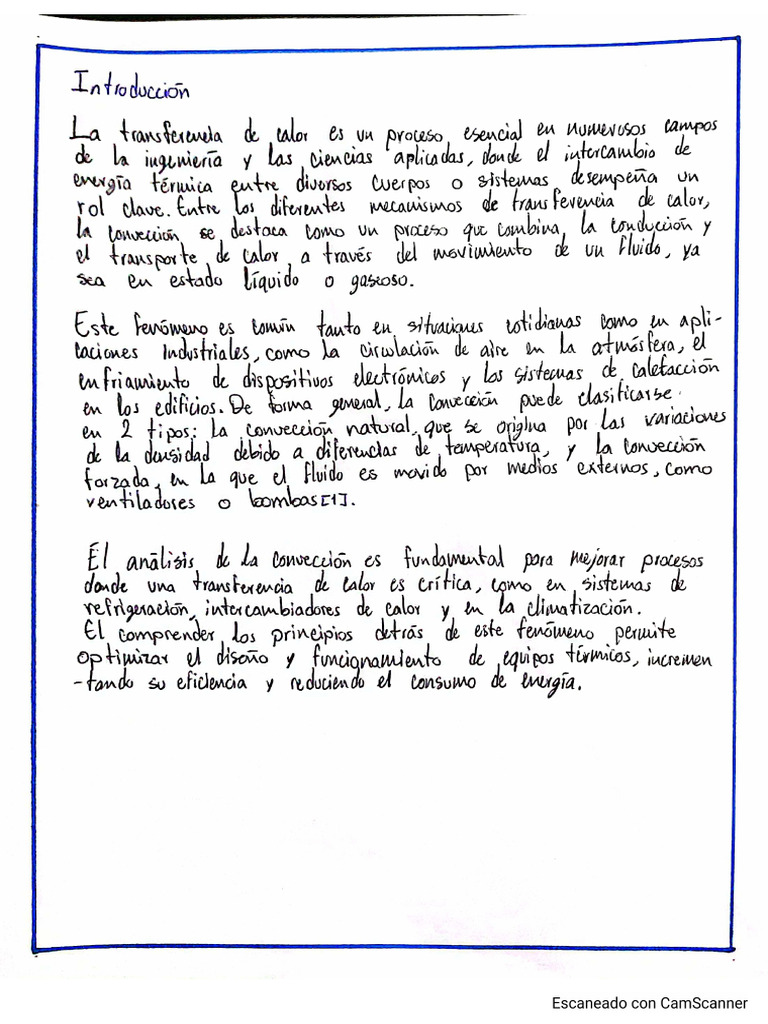 Introducción
La transferencia de calor es un proceso esencial en numerosos campos
de la ingeniería y las ciencias aplicadas, donde el intercambio de
energía térmica entre diversos cuerpos o sistemas desempeña un
rol clave. Entre los diferentes mecanismos de transferencia de calor,
la convección se destaca como un proceso que combina, la conducción y
el transporte de calor a través del movimiento de un fluido, ya
sea en estado líquido o gaseoso.
Este fenómeno es común tanto en situaciones cotidianas como en apli-
caciones industriales, como la circulación de aire en la atmósfera, el
enfriamiento de dispositivos electrónicos y los sistemas de calefacción
en los edificios. De forma general, la convección puede clasificarse
en 2 tipos: La convección natural, que se origina por las variaciones
de la densidad debido a diferencias de temperatura, y la convección
forzada, en la que el fluido es movido por medios externos, como
ventiladores o bombas[1].
El análisis de la convección es fundamental para mejorar procesos
donde una transferencia de calor es crítica, como en sistemas de
refrigeración, intercambiadores de calor y en la climatización.
El comprender los principios detrás de este fenómeno permite
optimizar el diseño y funcionamiento de equipos térmicos, incremen
-tando su eficiencia y reduciendo el consumo de energía.
Escaneado con CamScanner